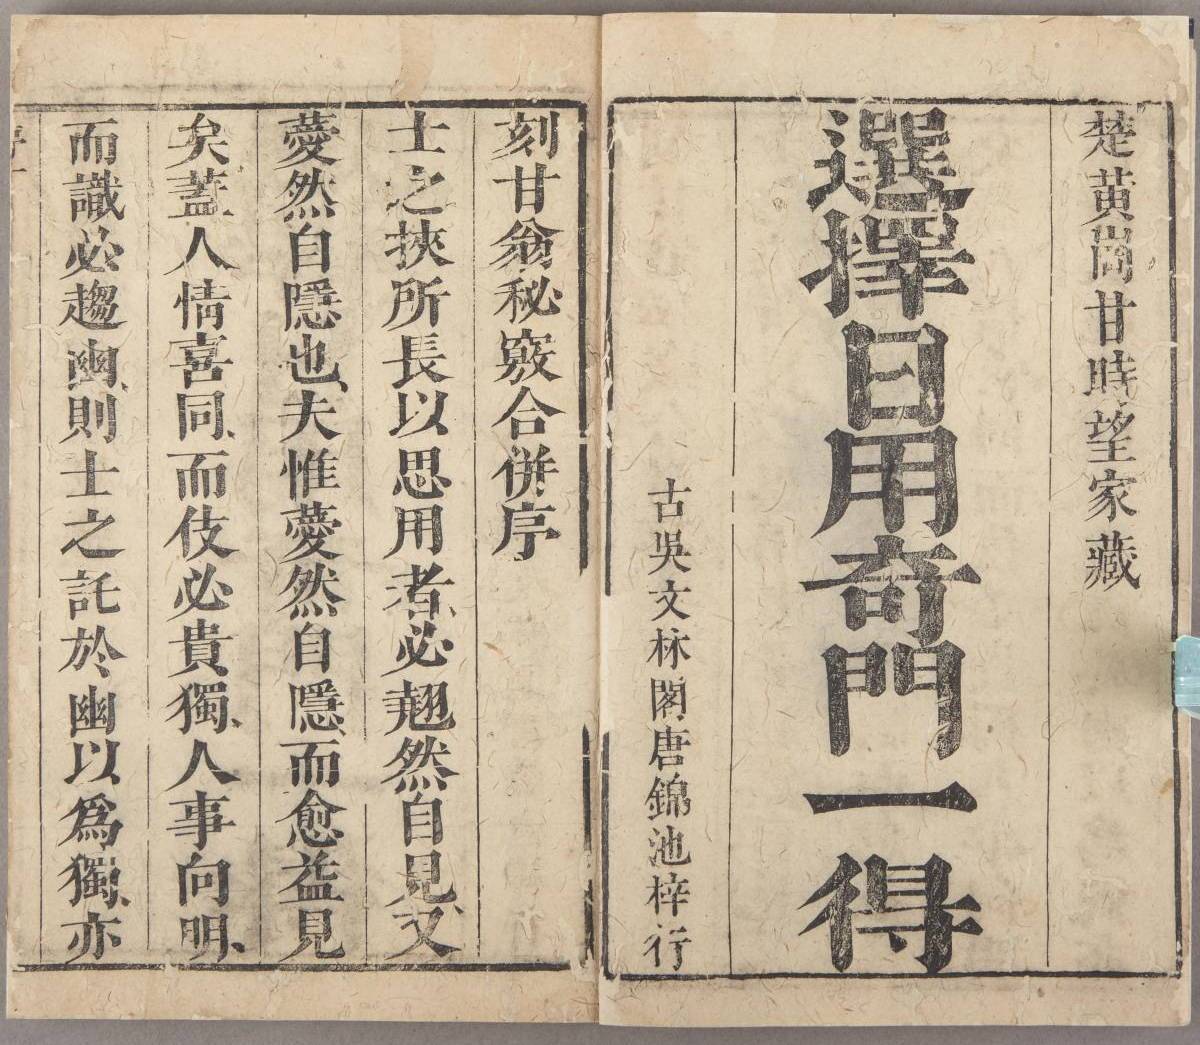 楚黃岡甘時望家藏
選擇日用奇門一得
古吳文秝閣唐錦池梓行
刻甘翁秘竅合併序
士之挾所長以思用者必翹然自見又
薆然自隱也夫惟薆然自隱而愈益見
矣蓋人情喜同而伎必貴獨人事向明
而識必趨幽則士之託於幽以為獨亦